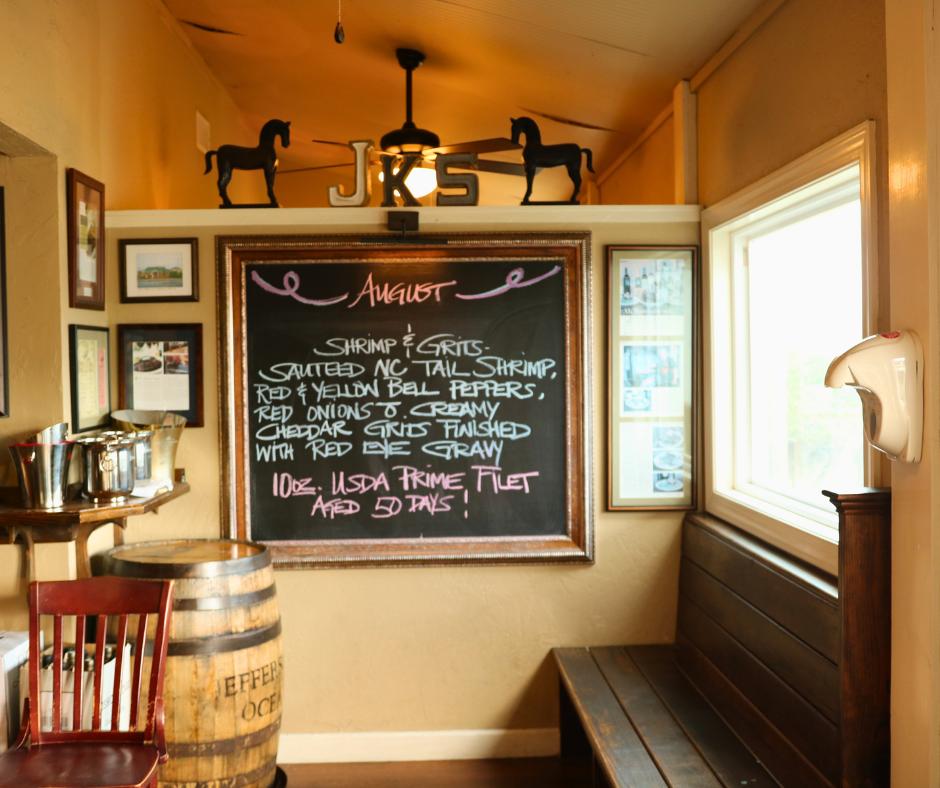 JKS
AUGUST
SHRIMP & GRITS-
SAUTEED NC TAIL SHRIMP,
RED & YELLOW BELL PEPPERS,
RED ONIONS O. CREAMY
CHEDDAR GRITS FINISHED
WITH RED EYE GRAVY
10OZ. USDA PRIME FILET
AGED 50 DAYS!
EFFERS
OCEA